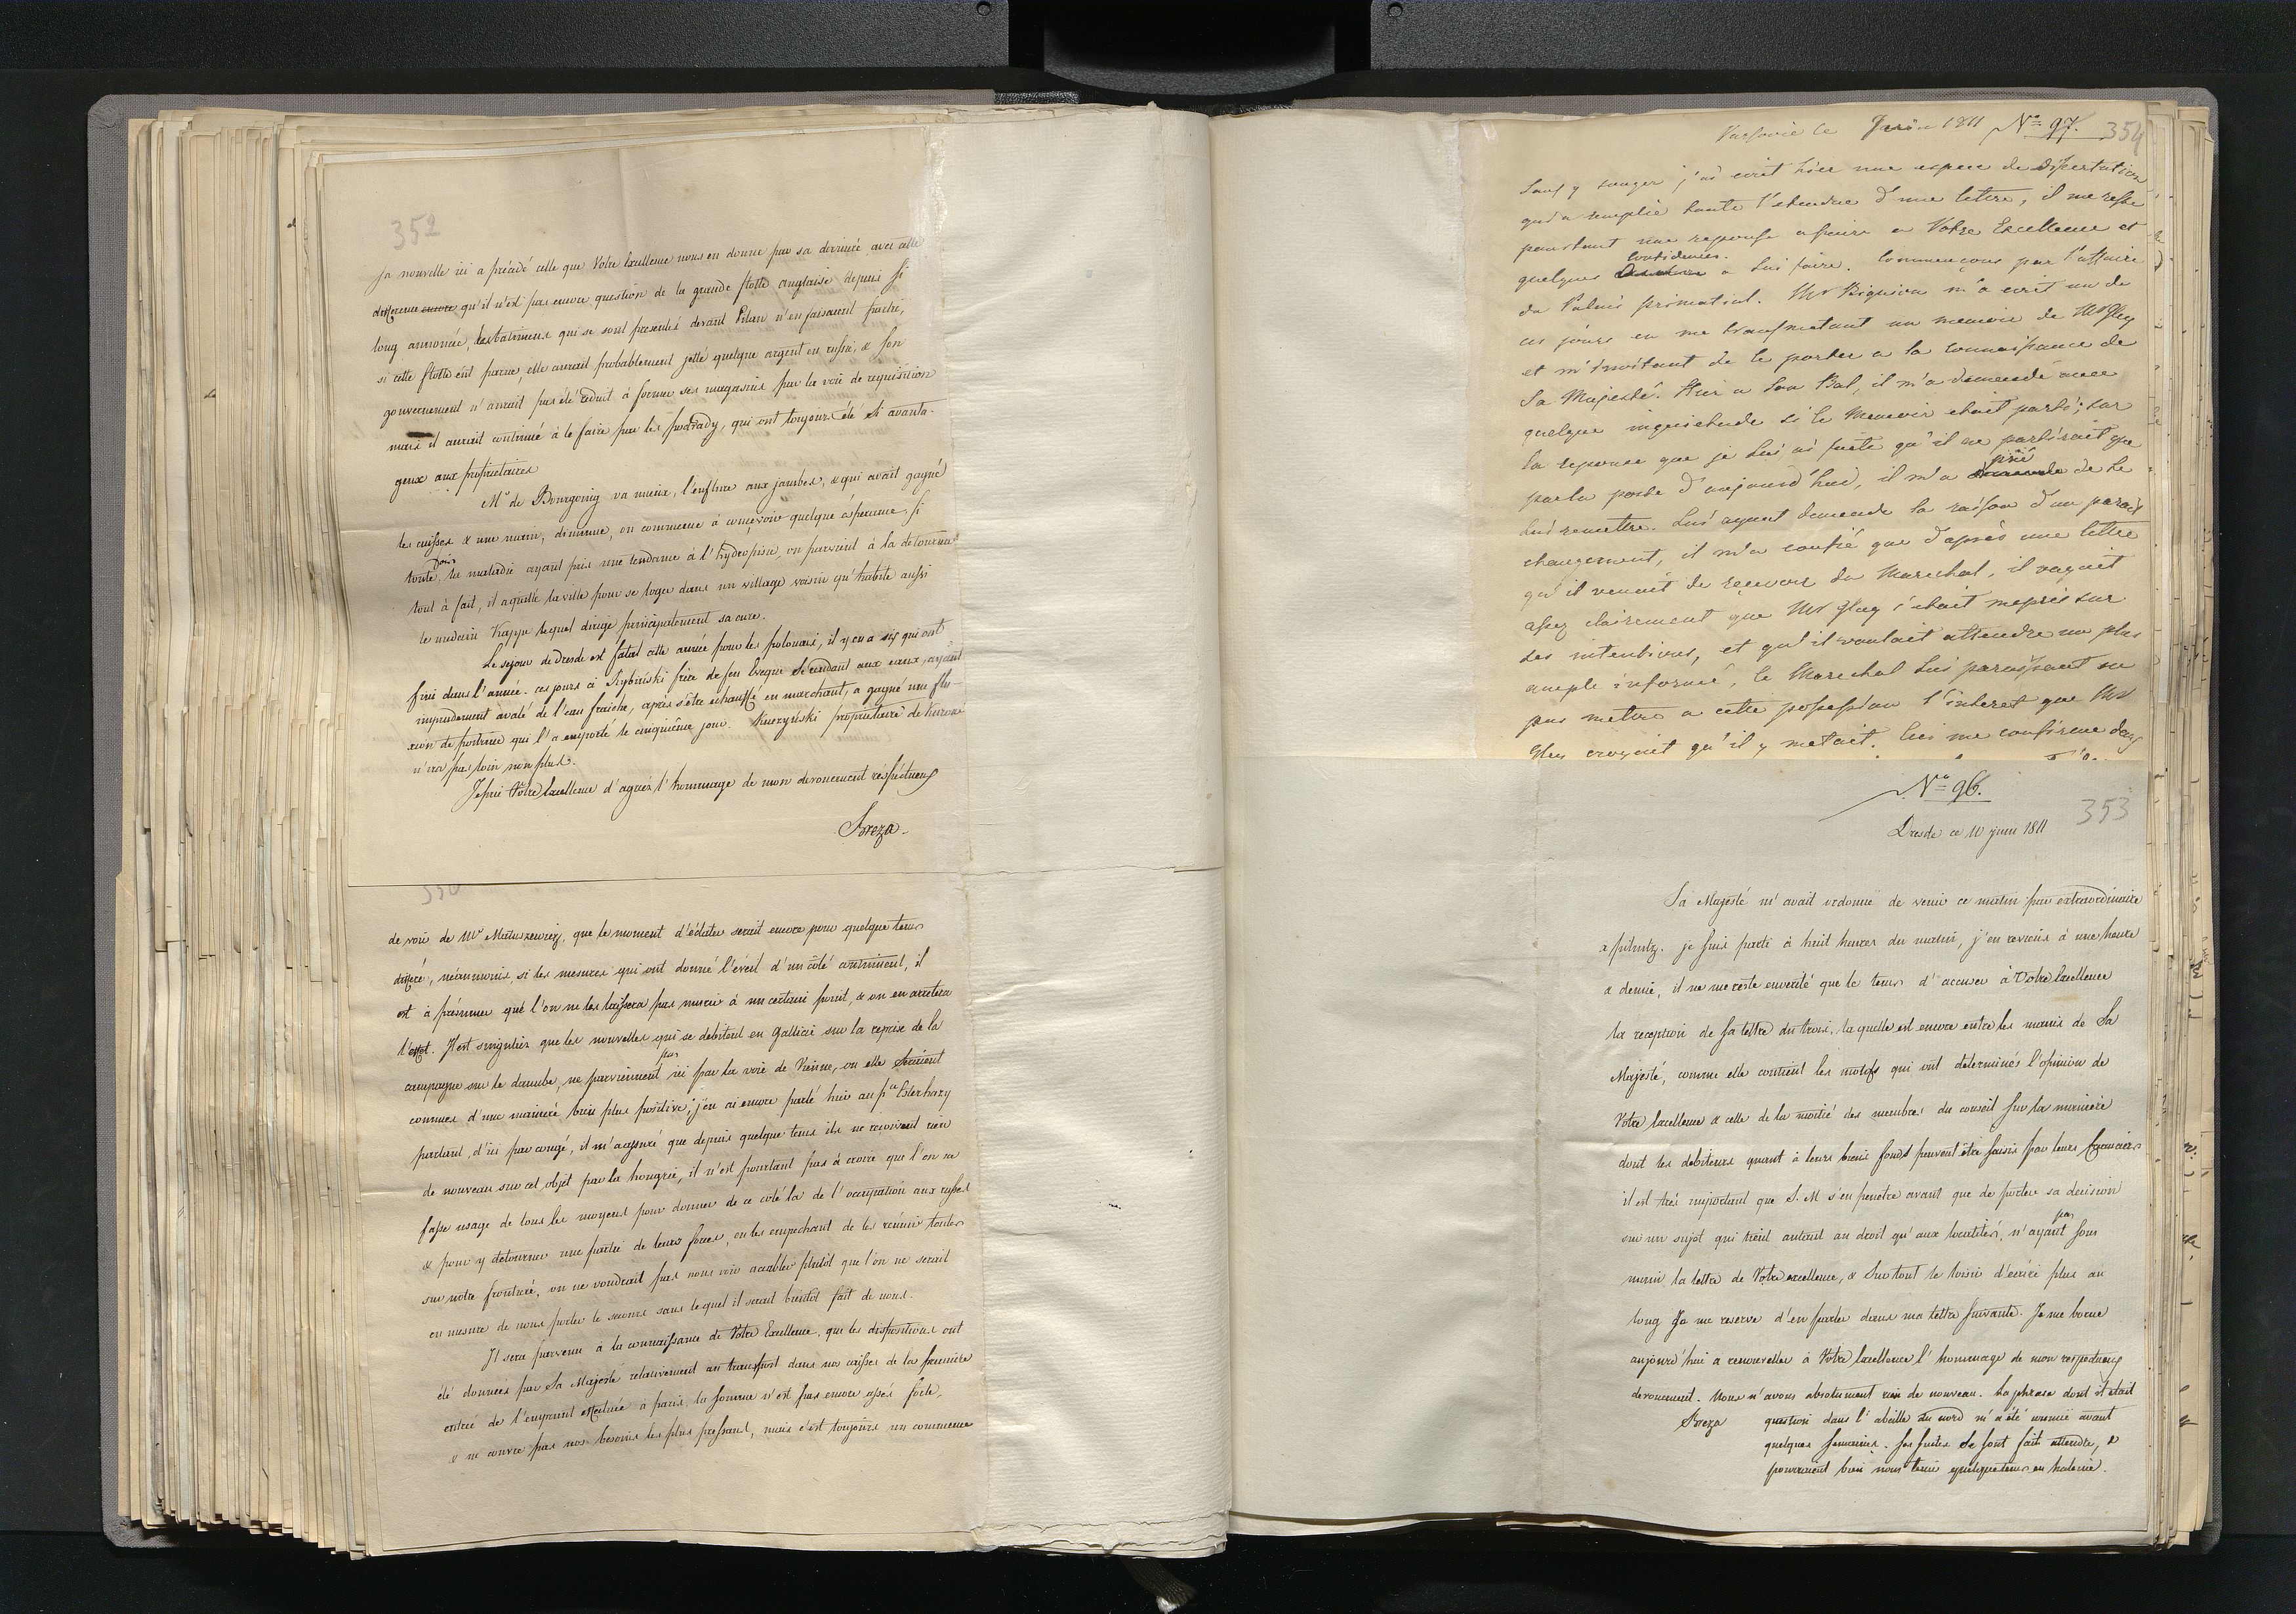 352
Ja nouvelle ici a précédé celle que Votre Excellence nous en donne par sa dernière avec cette
difference encore qu'il n'est pas encore question de la grande flotte anglaise depuis si
long annoncée, les batimens qui se sont presentés devant Pilau n'en faisaient partie,
si cette flotte eût parue, elle aurait probablement jetté quelque argent en russie, & son
gouvernement n'aurait pas été réduit à former ses magasins par la voie de requisition
mais il aurait continué à le faire par les podrady, qui ont toujours été si avanta-
geux aux proprietaires
Mr de Bourgoing va mieux, l'enflure aux jambes, & qui avait gagné
les cuisses & une main, diminue, on commence à conçevoir quelque ésperance, si
toute fois la maladie ayant pris une tendance à l'hydropisie, on parvient à la detourner
tout à fait, il a quitté la ville pour se loger dans un village voisin qu'habite aussi
le medecin Kapp lequel dirige principalement sa cure.
Le sejour de dresde est fatal cette année pour les polonais, il y en a six qui ont
fini dans l'année. ces jours ci Rybiński frère de feu Eveque se rendant aux eaux, ayant
imprudement avalé de l'eau fraiche, après s'être echauffé en marchant, a gagné une flu-
xion de poitrine qui l'a emporté le cinquième jour. Kuczyński proprietaire de
n'en pas loin non plus.
Je prie Votre Excellence d'agréer l'hommage de mon devouement réspéctueux
Breza.
350
de voir de Mr Matuszewicz, que le moment d'éclater serait encore pour quelque tems
différé, néanmoins, si les mesures qui ont donné l'éveil d'un côté continuent, il
est à présumer que l'on ne les laissera pas murir à un certain point, & on en arretera
l'effet. Il est singulier que les nouvelles qui se debitent en Gallicie sur la reprise de la
campagne sur le danube, ne parviennent pas ici par la voie de Vienne, ou elle seraient
connues d'une manière bien plus positive; j'en ai encore parlé hier au pce Esterhazy
partant d'ici par congé, il m'a assuré que depuis quelque tems ils ne reçoivent rien
de nouveau sur cet objet par la hongrie, il n'est pourtant pas à croire que l'on ne
fasse usage de tous les moyens pour donner de ce coté la de l'occupation aux russes
& pour y detourner une partie de leurs forces, en les empechant de les réunir toutes
sur notre frontière, on ne voudrait pas nous voir accabler plutôt que l'on ne serait
en mesure de nous porter le secours sans lequel il serait bientôt fait de nous.
Il sera parvenu à la connaissance de Votre Excellence, que les dispositions ont
été données par Sa Majesté relativement au transport dans nos caisses de la première
entrée de l'emprunt effectuée à paris, la somme n'est pas encore assés forte,
& ne couvre pas nos besoins les plus pressans, mais c'est toujours un commence
Varsovie ce Juin 1811 No 97. 354
Sans y songer j'ai ecrit hier une espece de dissertation
qui a remplie toute l'etendue d'une lettre, il me reste
pourtant une reponse a faire a Votre Excellence et
confidences.
quelques a Lui faire. Commençons par l'affaire
du Palais primatial. Mr Bignion m'a ecrit un de
ces jours en me transmetant un memoire de Mr Gley
et m'invitant de le porter a la connaissance de
Sa Majesté. Hier a son Bal, il m'a demandé avec
quelque inquietude si le Memoir etait parti; sur
la reponse que je Lui ai faite qu'il ne partirait que
par la poste d'aujourd'hui, il m'a prié de le
Lui remettre. Lui ayant demandé la raison d'un pareil
changement, il m'a confié que d'après une lettre
qu'il venait de reçevoir du Marechal, il voyait
assez clairement que Mr Gley s'etait mepris sur
ses intentions, et qu'il voulait attendre un plus
ample informé, le Marechal Lui paraissant ne
pas mettre a cette possession l'interet que Mr
Gley croyait qu'il y metait. Ceci me confirme dans
No 96.
353
Dresde ce 10 juin 1811
Sa Majesté m'avait ordonné de venir ce matin par extraordinaire
a pilnitz. je suis parti à huit heures du matin, j'en reviens à une heure
& demie, il ne me reste en verité que le tems d'accuser à Votre Excellence
la reception de sa lettre du trois, la quelle est encore entre les mains de Sa
Majesté, comme elle contient les motifs qui ont determinés l'opinion de
Votre Excellence & celle de la moitié des membres du conseil sur la manière
dont les debiteurs quant à leurs biens fonds peuvent être saisis par leurs Creanciers
il est très important que S. M s'en penetre avant que de porter sa decision
sur un sujet qui tient autant au droit qu'aux localités, n'ayant pas sous
main la lettre de Votre excellence, & surtout le loisir d'ecrire plus au
long Je me reserve d'en parler dans ma lettre suivante. Je me borne
aujourd'hui a renouveller à Votre Excellence l'hommage de mon respectueux
devouement. Nous n'avons absolument rien de nouveau. La phrase dont il était
Breza question dans l'abeille du nord m'a été connue avant
quelques semaines. ses suites se font fait attendre, &
pourraient bien nous tenir quelque tems en haleine.